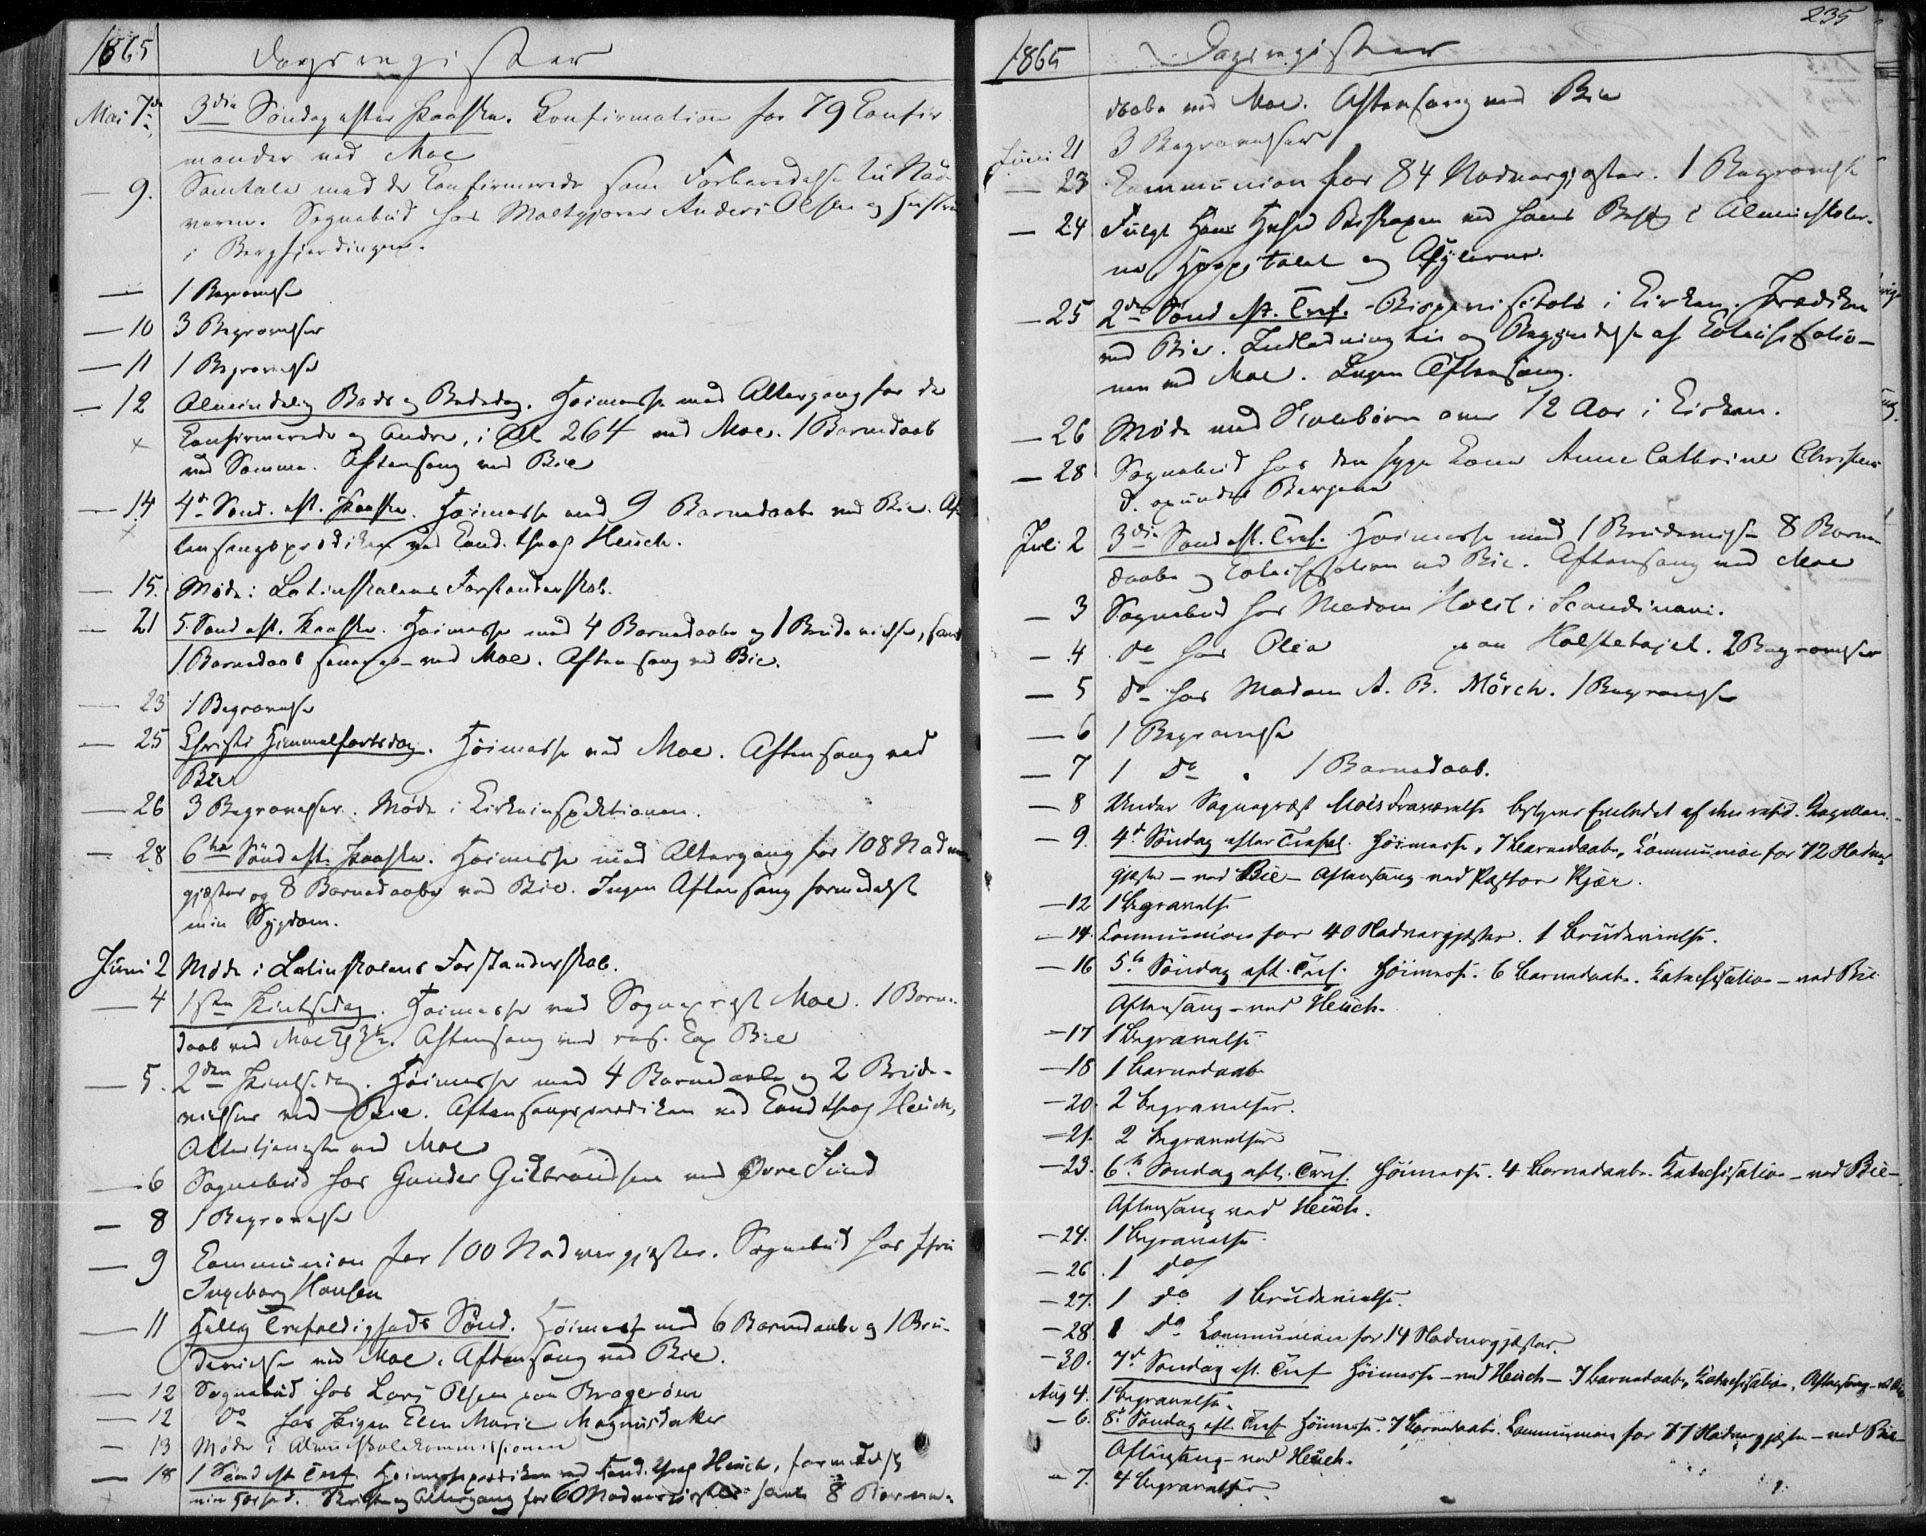 1865 Dagsregister
Mai 7de 3die Søndag efter Paaske. Confirmation for 79 Confir-
mander ved Moe
— 9. Samtale med de Confirmerede som Forberedelse til Nad-
veren. Sognebud hos Maltgjører Anders Olsen og Hustru
i Bergfjerdingen.
— 1 Begravelse
— 10 3 Begravelser
— 11 1 Begravelse
— 12 Almindelig Bods og Bededag. Høimesse med Altergang for de
Confirmerede og Andre, i Alt 264 ved Moe. 1 Barnedaab
ved Samme. Aftensang ved Bie
— 14 4de Sønd. eft. Paaske. Høimesse med 9 Barnedaabe ved Bie. Af-
tensangsprædiken ved Cand. theol Heuch.
— 15. Møde i Latinskolens Forstanderskab.
— 21 5 Sønd eft. Paaske. Høimesse med 4 Barnedaabe og 1 Brudevielse, samt
1 Barnedaab hjemme - ved Moe. Aftensang ved Bie.
— 23 1 Begravelse
— 25 Christi Himmelfartsdag. Høimesse ved Moe. Aftensang ved
Bie
— 26 3 Begravelser. Møde i Kirkeinspektionen.
— 28 6te Sønd eft. Paaske. Høimesse med Altergang for 108 Nadver-
gjæster og 8 Barnedaabe ved Bie. Ingen Aftensang formedelst
min Sygdom.
Juni 2 Møde i Latinskolens Forstanderskab.
— 4 1ste Pintsedag. Høimesse ved Sognepræst Moe. 1 Barne-
daab ved Moe Aftensang ved res. Cap Bie
— 5. 2den Pintsedag. Høimesse med 4 Barnedaabe og 2 Brude-
vielser ved Bie. Aftensangsprædiken ved Cand theol Heuch,
Altertjeneste ved Moe
— 6 Sognebud hos Gunder Gulbrandsen ved Øvre Sund
— 8 1 Begravelse
— 9 Communion for 100 Nadvergjæster. Sognebud hos Jfru
Ingeborg Hansen
— 11 Hellig Trefoldigheds Sønd. Høimesse med 6 Barnedaabe og 1 Bru-
devielse ved Moe. Aftensang ved Bie.
— 12 Sognebud hos Lars Olsen paa Bragerøen
— 12 do hos Pigen Elen Marie Magnusdatter
— 13 Møde i Almueskolekommissionen
— 18 1 Sønd eft Tref. Høimesseprædiken ved Cand. theol Heuch, formedelst
min Hæshed. Skrifte og Altergang for Nadvergjæster samt 8 Barne-
235
1865 Dagsregister
daabe ved Moe. Aftensang ved Bie
Juni 21 3 Begravelser
— 23 Communion for 84 Nadvergjæster. 1 Begravelse
— 24 Fulgt Hans Biskopen ved hans Besøg i Almueskoler-
ne, Hospitalet og Asylerne.
— 25 2den Sønd eft. Tref. - Bispevisitats i Kirken. Prædiken
ved Bie. Indledning til og Begyndelse af Catechisatio-
nen ved Moe. Ingen Aftensang.
— 26 Møde med Skolebørn over 12 Aar i Kirken.
— 28 Sognebud hos den syge Kone Anne Cathrine Christens
D. Bergene
Juli 2 3die Sønd eft. Tref. Høimesse med 1 Brudevielse 8 Barne-
daabe og Catechisation ved Bie. Aftensang ved Moe
— 3 Sognebud hos Madam Holst i Scandinavi.
— 4 do hos Olea paa Holstetøjet. 2 Begravelser
— 5 do hos Madam A. B. Mørch. 1 Begravelse
— 6 1 Begravelse
— 7 1 do . 1 Barnedaab.
— 8 Under Sognepræst Moes Fraværelse bestyres Embedet af den resid. Kapellan.
— 9. 4de Søndag efter Trefol. Høimesse, 7 Barnedaabe, Communion for 72 Nadver-
gjæster - ved Bie - Aftensang ved Pastor Kjær.
— 12 1 Begravelse
— 14. Communion for 40 Nadvergjæster. 1 Brudevielse.
— 16 5te Søndag eft. Tref. Høimesse. 6 Barnedaabe. Katechisation - ved Bie
Aftensang - ved Heuch.
— 17 1 Begravelse
— 18 1 Barnedaab
— 20. 2 Begravelser.
— 21. 2 Begravelser
— 23. 6te Søndag eft. Tref. Høimesse. 4 Barnedaabe. Katechisation - ved Bie -
Aftensang ved Heuch.
— 24. 1 Begravelse
— 26. 1 do
— 27. 1 do 1 Brudevielse.
— 28. 1 do Communion for 14 Nadvergjæster.
— 30. 7de Søndag eft. Tref Høimesse - ved Heuch - 7 Barnedaabe, Katechisation, Aftensang - ved Bie
Aug 4. 1 Begravelse.
— 6. 8de Søndag eft. Tref Høimesse. 7 Barnedaabe. Communion for 77 Nadvergjæster - ved Bie -
Aftensang - ved Heuch.
— 7. 4 Begravelser.